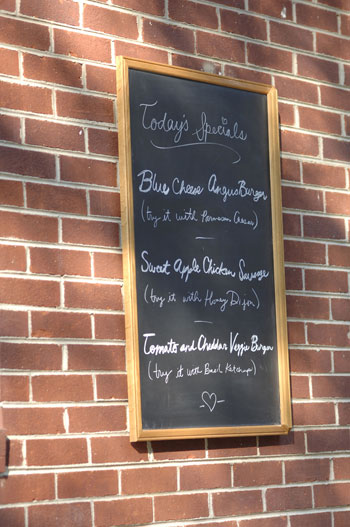 Today's Specials
Blue Cheese Angus Burger
(try it with Parmesan Cheese)
Sweet Apple Chicken Sausage
(try it with Honey Dijon)
Tomato and Cheddar Veggie Burger
(try it with Basil Ketchup)